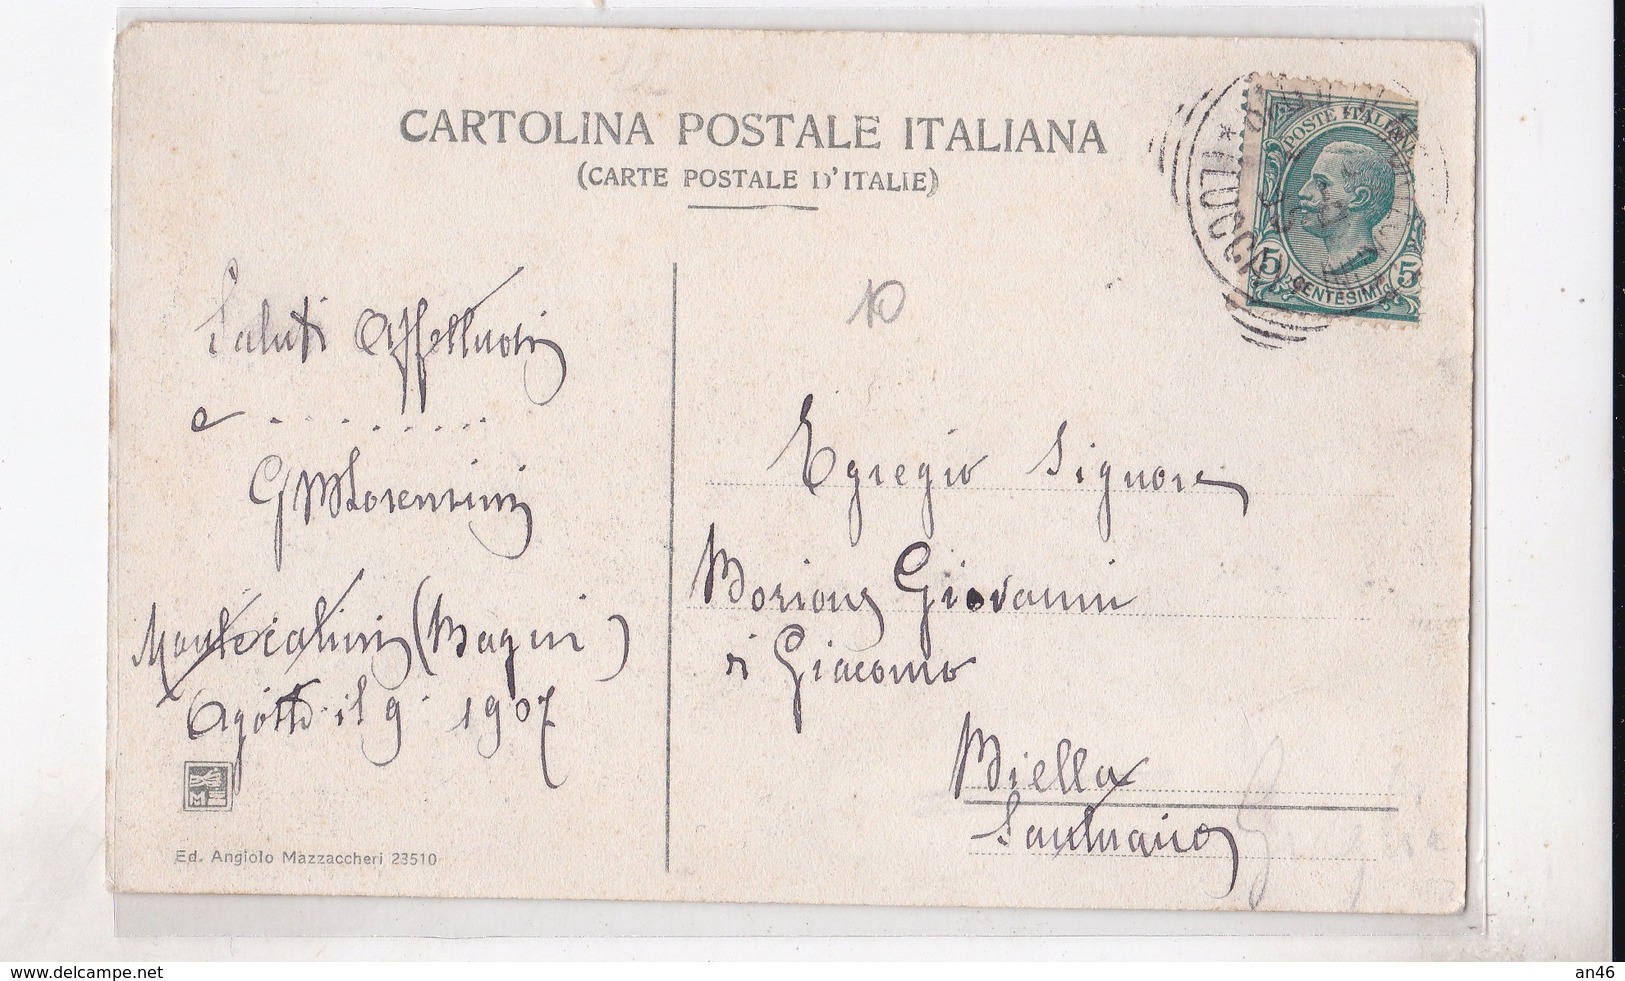 CARTOLINA POSTALE ITALIANA
(CARTE POSTALE D'ITALIE)
POSTE ITALIANE
5 CENTESIMI 5
(LUCCA)
10
Saluti Affettuosi
e . . . . . . . . .
G M Lorenzini
Montecatini (Bagni)
Agosto il 9. 1907
Egregio Signore
Giovanni
di Giacomo
Biella
M
Ed. Angiolo Mazzaccheri 23510
www.delcampe.net
an46